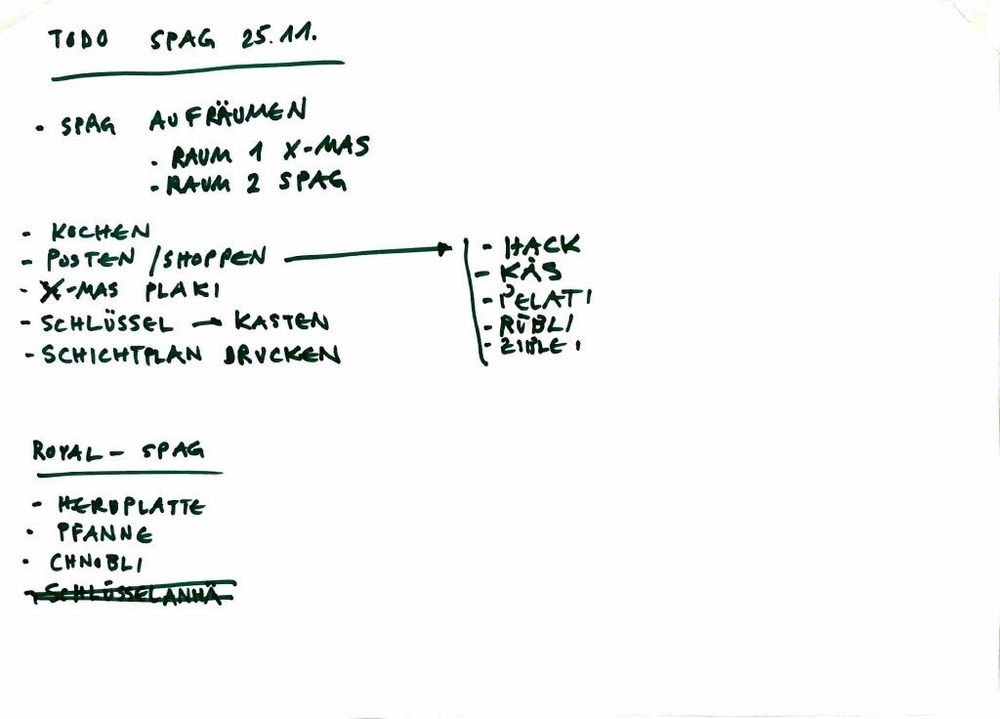 TODO SPAG 25.11.
- SPAG AUFRÄUMEN
- RAUM 1 X-MAS
- RAUM 2 SPAG
- KOCHEN
- POSTEN / SHOPPEN →
- X-MAS PLAKI
- SCHLÜSSEL → KASTEN
- SCHICHTPLAN DRUCKEN
- HACK
- KÄS
- PELATI
- RÜBLI
ROYAL - SPAG
- HERDPLATTE
- PFANNE
- CHNOBLI
- SCHLÜSSELANHÄ